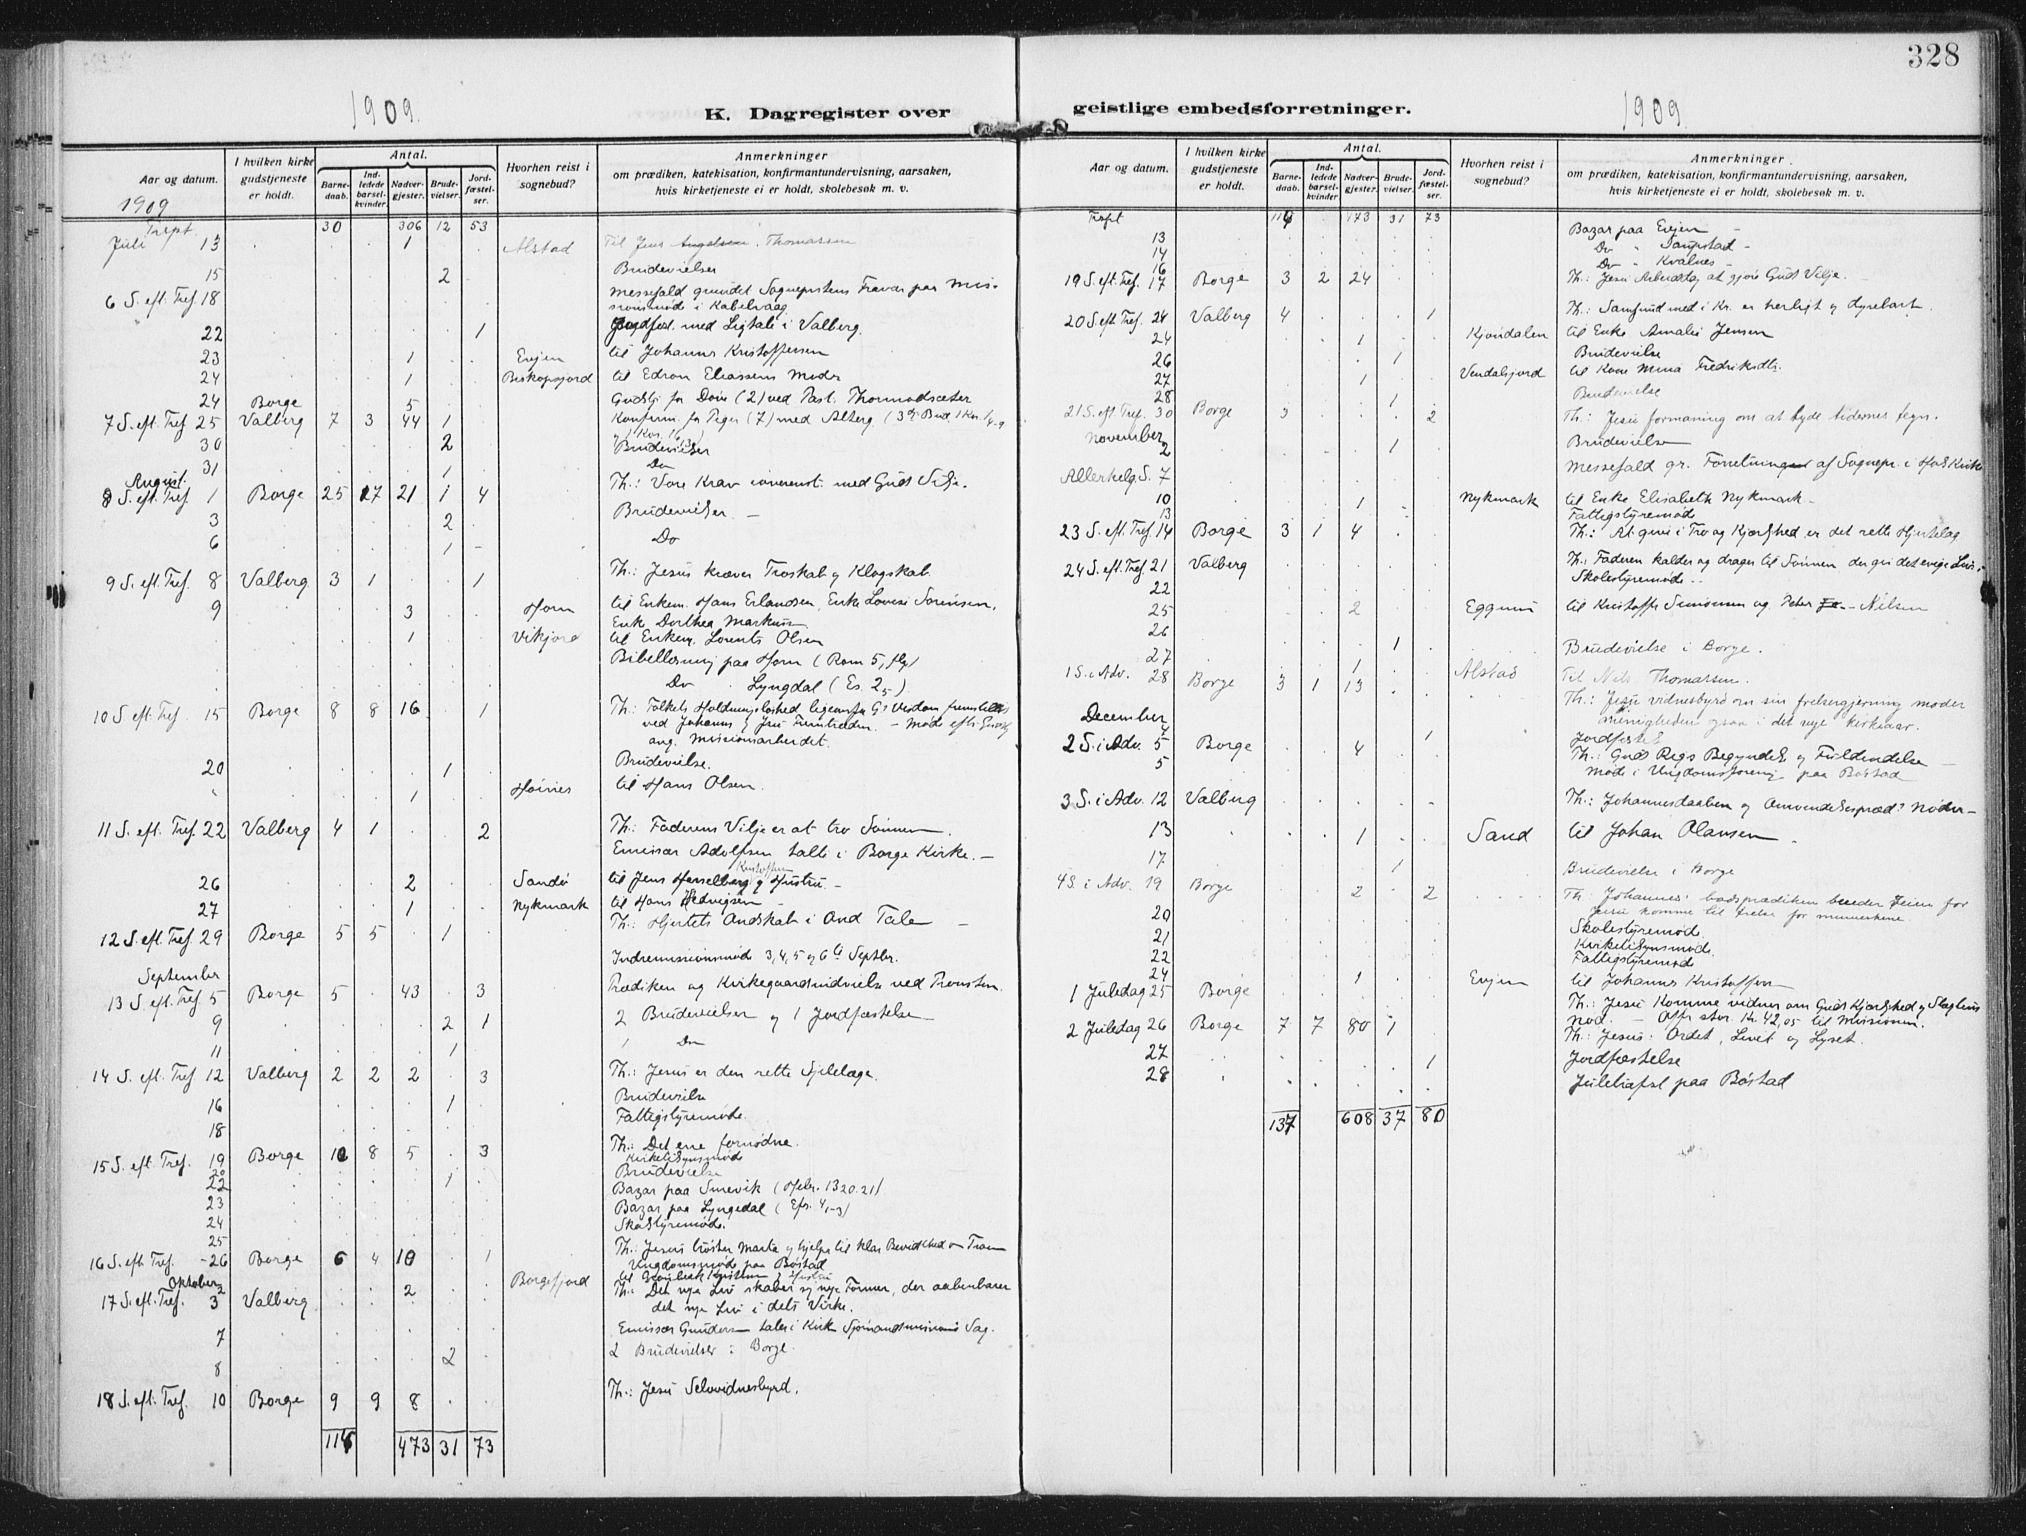 328
1909.
K. Dagregister over
Aar og datum. I hvilken kirke gudstjeneste er holdt. Antal. Barne-daab. Ind-ledede barsel-kvinder. Nødver-gjester. Brude-vielser. Jord-fæstel-ser. Hvorhen reist i sognebud? Anmerkninger om prædiken, katekisation, konfirmantundervisning, aarsaken, hvis kirketjeneste ei er holdt, skolebesøk m. v.
1909
Trspt. 30 306 12 53
Juli 13 1 Alstad Til Jens Thomassen
15 2 Brudevielser
6 S. eft. Tref. 18 Messefald grundet Sogneprestens Fravær paa Mis-
sionsmøde i Kabelvaag
22 1 Jordfest. med Ligtale i Valberg.
23 1 Evjen til Johannes Kristoffersen
24 1 Biskopsjord til Edron Eliassens Moder
24 Borge 5 Gudstj. for Døve (2) ved Past. Thormodsæter
7 S. eft. Tref 25 Valberg 7 3 44 1 Konfirm. for Piger (7) med Alterg.
30 2 Brudevielser
31 1 Do
August.
8 S. eft. Tref. 1 Borge 25 17 21 1 4 Th.: Vore Krav i overenst. med Guds Vilje.
3 2 Brudevielser –
6 1 Do
9 S. eft. Tref. 8 Valberg 3 1 1 Th.: Jesus kræver Troskab og Klogskab.
9 3 Horn til Enkem. Hans Erlandsen, Enke Lovise Sørensen,
Enk Dorthea Markussen
1 Vikjord til Enkem. Lorents Olsen
Bibellæsning paa Horn (Rom 5, flg)
Do Lyngdal (Es. 2 5)
10 S eft. Tref. 15 Borge 8 8 16 1 Th.: Folkets Holdningsløshed ligeoverfor G's Visdom
ved Johannes & Jesu Fremtræden. – Møde eft. Gudstj
ang. Missionsarbeidet.
20 1 Brudevielse.
1 Høines til Hans Olsen.
11 S. eft. Tref. 22 Valberg 4 1 2 Th.: Faderens Vilje er at tro Sønnen.
Emissær Adolfsen talte i Borge Kirke. –
26 2 Sandø til Jens Hasselberg Kristoffersen og Hustru –
27 1 Nykmark til Hans Hedvigsen –
12 S. eft. Tref. 29 Borge 5 5 1 Th.: Hjertets Andskab i And Tale –
Indremissionsmøde 3, 4, 5 og 6te Septbr.
September
13 S. eft. Tref. 5 Borge 5 43 3 Prædiken og Kirkegaardsindvielse ved Provsten.
9 2 1 2 Brudevielser og 1 Jordfæstelse
11 1 1 Do
14 S. eft. Tref 12 Valberg 2 2 2 3 Th.: Jesus er den rette Sjælelæge.
16 1 Brudevielse
18 Fattigstyremøde.
15 S. eft. Tref. 19 Borge 10 8 5 3 Th.: Det ene fornødne.
20 Kirketilsynsmøde
22 1 Brudevielse
23 Bazar paa Smevik (Hebr. 13 20.21)
24 Bazar paa Lyngedal (Efs. 4, 1-3)
25 Skolestyremøde.
16 S. eft. Tref. 26 Borge 6 4 10 1 Th.: Jesus trøster Marta og hjelper til klar Bevidsthed om Troen
Ungdomsmøde paa Bøstad
Oktober 2 2 Borgefjord
17 S. eft. Tref. 3 Valberg Th.: Det nye Liv skaber og nye Former, der aabenbarer
det nye Liv i dets Virke.
7 Emissær Gundersen taler i Kirken Sjømandsmissionens Sag.
8 2 2 Brudevielser i Borge.
18 S. eft. Tref. 10 Borge 9 9 8 Th.: Jesu Selvvidnesbyrd.
114 473 31 73
1909
geistlige embedsforretninger.
Aar og datum. I hvilken kirke gudstjeneste er holdt. Antal. Barne-daab. Ind-ledede barsel-kvinder Nødver-gjester. Brude-vielser. Jord-fæstel-ser. Hvorhen reist i sognebud? Anmerkninger om prædiken, katekisation, konfirmantundervisning, aarsaken, hvis kirketjeneste ei er holdt, skolebesøk m. v.
Trspt 114 473 31 73
13 Bazar paa Evjen –
14 Do " Saupstad –
16 Do " Kvalnes –
19 S. eft. Tref. 17 Borge 3 2 24 Th.: Jesu Arbeidstøi at gjøre Guds Vilje. –
20 S. eft Tref. 24 Valberg 4 1 Th.: Samfund med i Kr. er herligt og dyrebart.
24 1 Kjøndalen til Enke Amalie Jensen
26 1 Brudevielse
27 1 Vendalsjord til Kone Mina Fredriksdtr.
28 1 Brudevielse
21 S. eft. Tref. 30 Borge 3 2 Th.: Jesu formaning om at tyde tidernes tegn.
November
2 1 Brudevielse
Allerhelg. S. 7 Messefald gr. Forretninger af Sognepr. i Hols Kirke
10 1 Nykmark til Enke Elisabeth Nykmark –
13 Fattigstyremøde
23 S. eft. Tref. 14 Borge 3 1 4 Th.: At give i Tro og Kjærlighed er det rette Hjertelag
24 S. eft. Tref. 21 Valberg Th.: Faderen kalder og drager til Sønnen der gir det evige Liv.
22 Skolestyremøde
25 2 Eggum til Kristoffer Simonsen og Peter – Nilsen
26
27 1 Brudevielse i Borge.
1 Alstad Til Nils Thomassen.
1 S. i Adv. 28 Borge 3 1 13 Th.: Jesu vidnesbyrd om sin frelsergjerning møder
menigheden ogsaa i det nye kirkeaar.
December
4 1 Jordfæstelse
2 S. i Adv. 5 Borge 4 Th.: Guds Rigs Begyndelse og Fuldendelse –
5 Møde i Ungdomsforening paa Bøstad
3 S. i Adv. 12 Valberg Th.: Johannesdaaben og Omvendelsespræd.
13 1 Sand til Johan Olausen.
17 1 Brudevielse i Borge
4 S. i Adv. 19 Borge 2 2 Th. Johannes' bodsprædiken bereder veien for
Jesu komme til frelse for menneskene.
20 Skolestyremøde.
21 Kirketilsynsmøde.
22 Fattigstyremøde
24 1 Evjen til Johannes Kristoffersen
1 Juledag 25 Borge Th.: Jesu Komme vidner om Guds Kjærlighed og Slægtens
Nød. – Offer stor. Kr. 42,05 til Missionen.
2 Juledag 26 Borge 7 7 80 1 Th.: Jesus: Ordet, Livet og Lyset.
27 1 Jordfæstelse
28 Juletræfest paa Bøstad
137 608 37 80